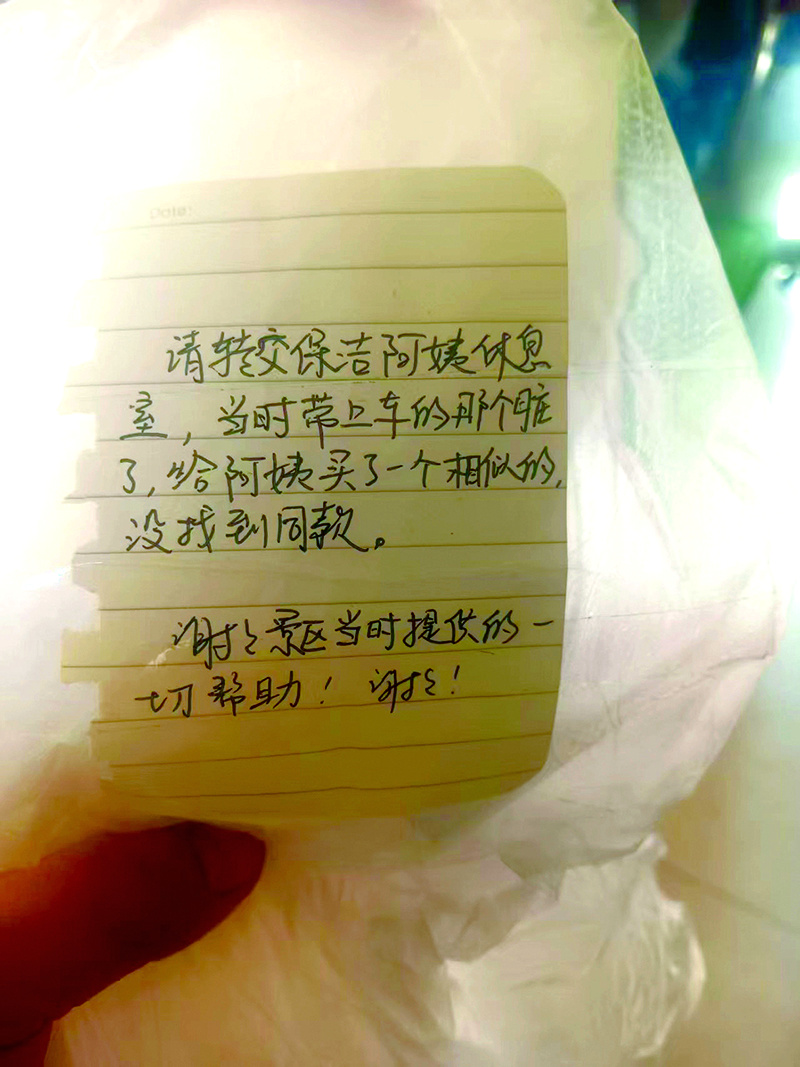 Date:
请转交保洁阿姨休息
室,当时带上车的那个脏
了,给阿姨买了一个相似的,
没找到同款。
谢谢景区当时提供的一
切帮助!谢谢!